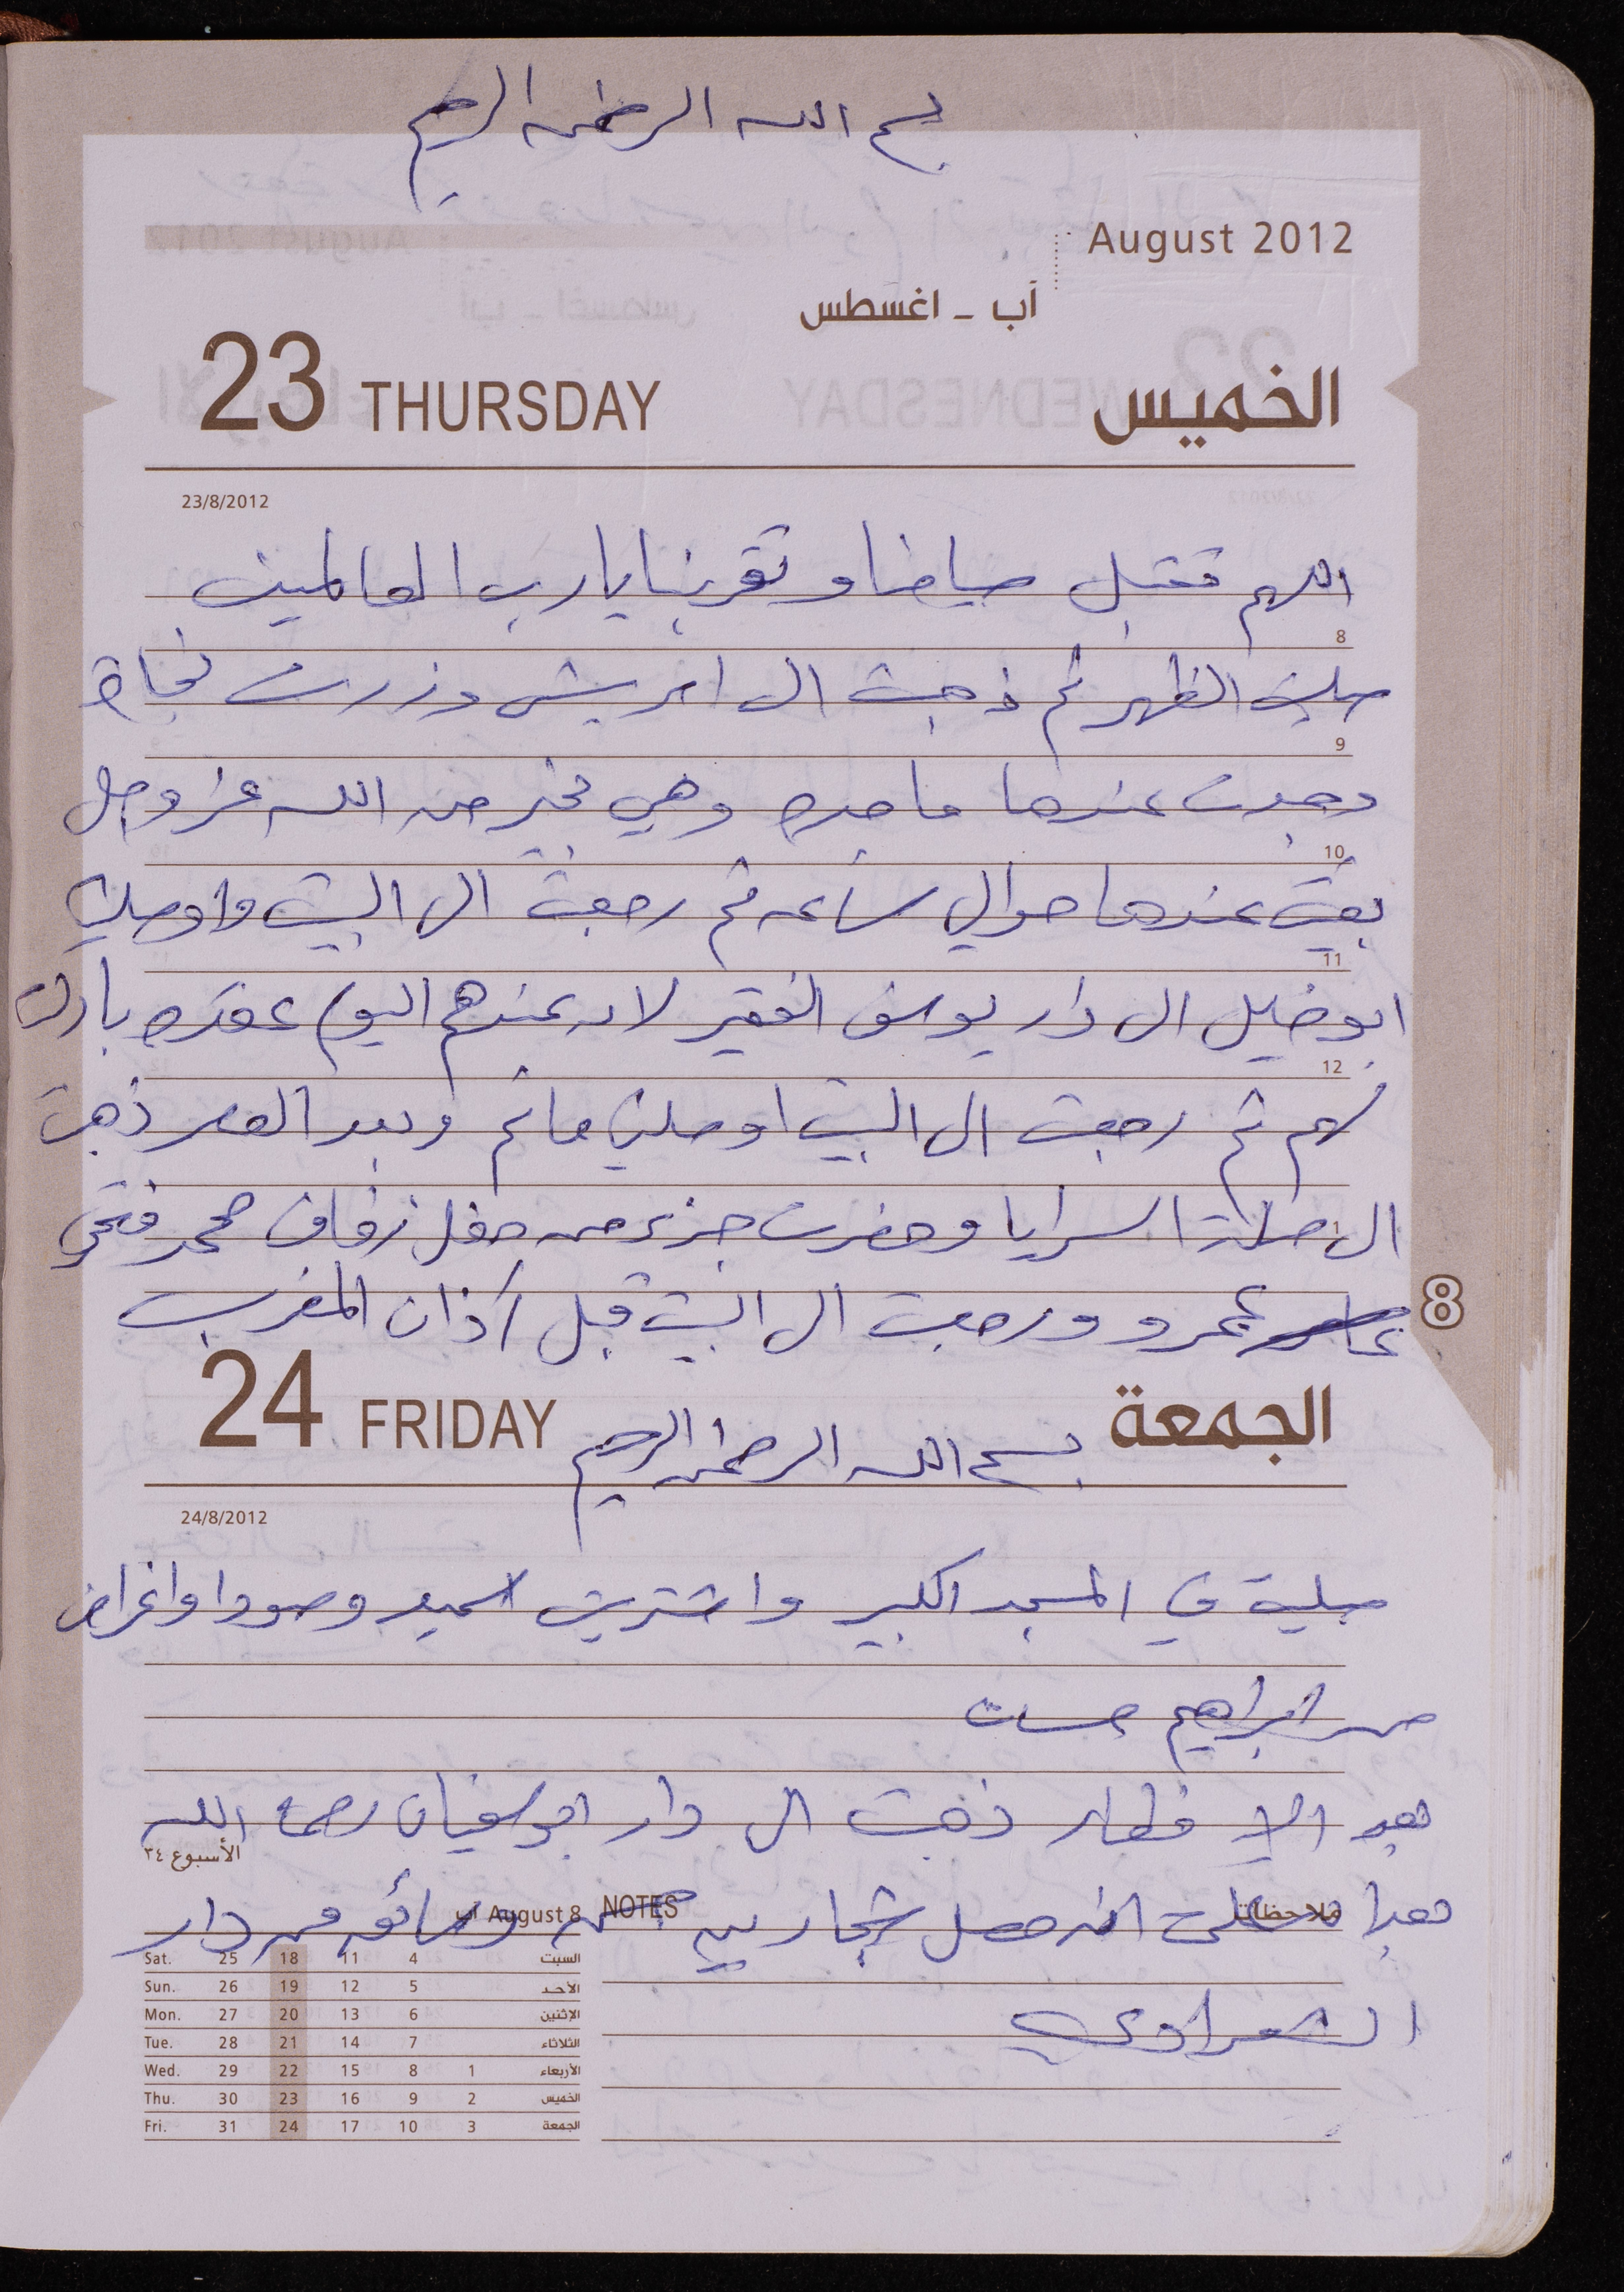 بسم الله الرحمن الرحيم
August 2012
آب - اغسطس
23 THURSDAY الخميس
23/8/2012
اللهم تقبل صيامنا وتقربنا يا رب العالمين
8
صليت الظهر ثم ذهبت الى وزرت نجاة
9
وجدت عندها ماجده وهي بخير من الله عز وجل
10
بقيت عندها حوالي ساعه ثم رجعت الى البيت واوصلني
11
ابو خليل الى دار يوسف الفقير لان عندهم اليوم عقده بارك
12
لهم ثم رجعت الى البيت اوصلني وبعد العصر ذهبت
الى السرايا وحضرت جزء من حفل زفاف محمد فتحي
عمرو ورجعت الى البيت قبل آذان المغرب
8
24 FRIDAY الجمعة
بسم الله الرحمن الرحيم
24/8/2012
صليت في المسجد الكبير واشتريت سميد وصودا واغراض
من ابراهيم
بعد الافطار ذهبت الى دار ابو سفيان رحمه الله
الأسبوع ٣٤
انه حصل من دار
الشعراوي
ملاحظات NOTES
آب August 8
Sat. 25 18 11 4 السبت
Sun. 26 19 12 5 الأحد
Mon. 27 20 13 6 الإثنين
Tue. 28 21 14 7 الثلاثاء
Wed. 29 22 15 8 1 الأربعاء
Thu. 30 23 16 9 2 الخميس
Fri. 31 24 17 10 3 الجمعة